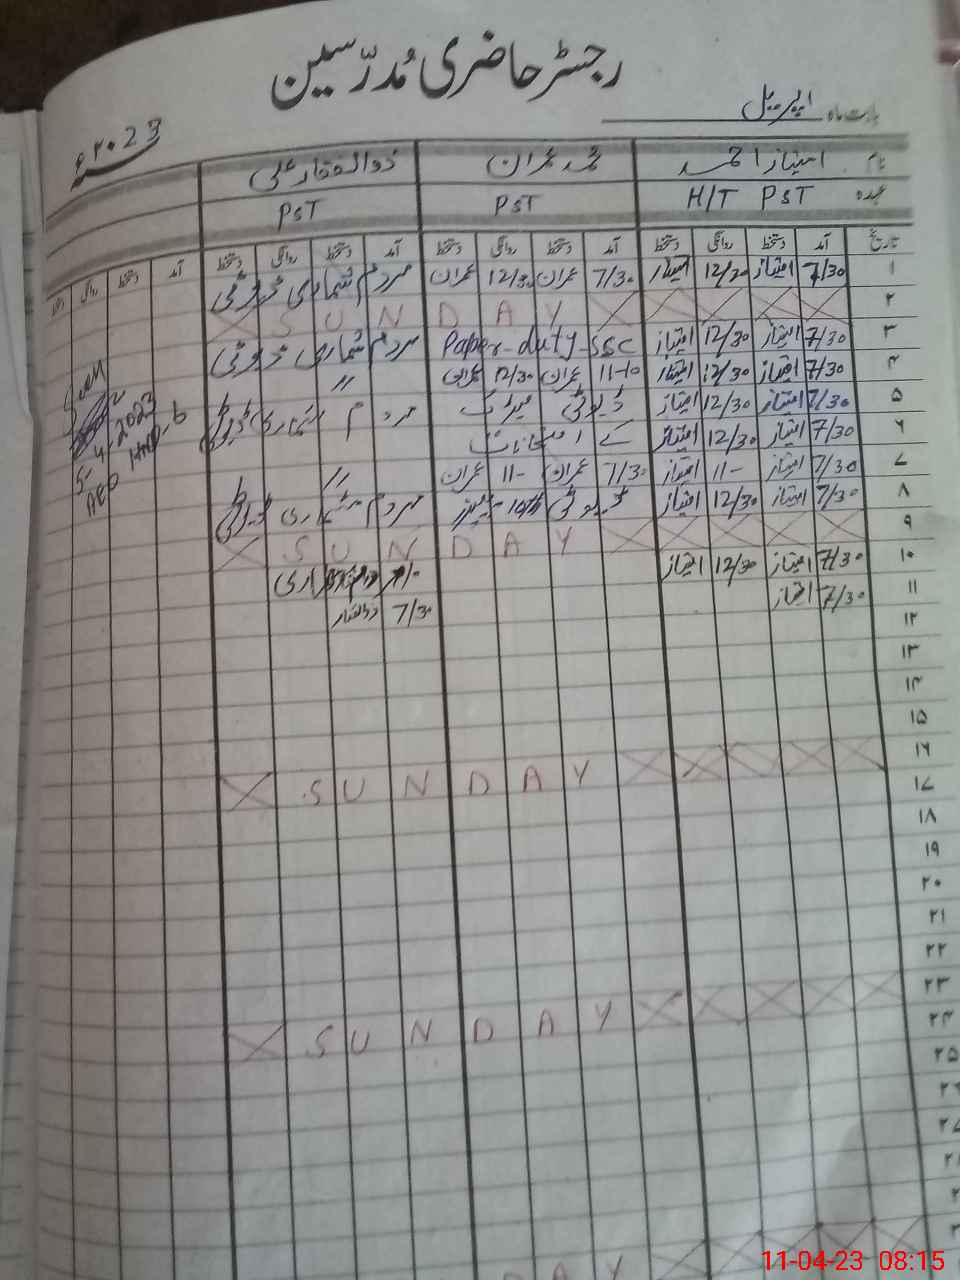 رجسٹر حاضری مُدرّسین
بابت ماہ اپریل
۶۲۰23
نام امتیاز احمد محمد عمران ذوالفقار علی
عہدہ H/T PST PST PST
تاریخ آمد دستخط روانگی دستخط آمد دستخط روانگی دستخط آمد دستخط روانگی دستخط آمد دستخط روانگی دستخط
۱ 7/30 امتیاز 12/30 امتیاز 7/30 عمران 12/30 عمران مردم شماری ڈیوٹی
۲ SUNDAY
۳ 7/30 امتیاز 12/30 امتیاز Paper-duty-SSC مردم شماری ڈیوٹی
۴ 7/30 امتیاز 12/30 امتیاز 11-10 عمران 12/30 عمران "
۵ 7/30 امتیاز 12/30 امتیاز ڈیوٹی میٹرک مردم شماری ڈیوٹی
۶ 7/30 امتیاز 12/30 امتیاز کے امتحانات
۷ 7/30 امتیاز 11- امتیاز 7/30 عمران 11- عمران "
۸ 7/30 امتیاز 12/30 امتیاز ڈیوٹی 10th مردم شماری ڈیوٹی
۹ SUNDAY
۱۰ 7/30 امتیاز 12/30 امتیاز
۱۱ 7/30 امتیاز 7/30 ذوالفقار
۱۲
۱۳
۱۴
۱۵
۱۶
۱۷ SUNDAY
۱۸
۱۹
۲۰
۲۱
۲۲
۲۳
۲۴ SUNDAY
۲۵
5-4-2023
AEO
AY
11-04-23 08:15